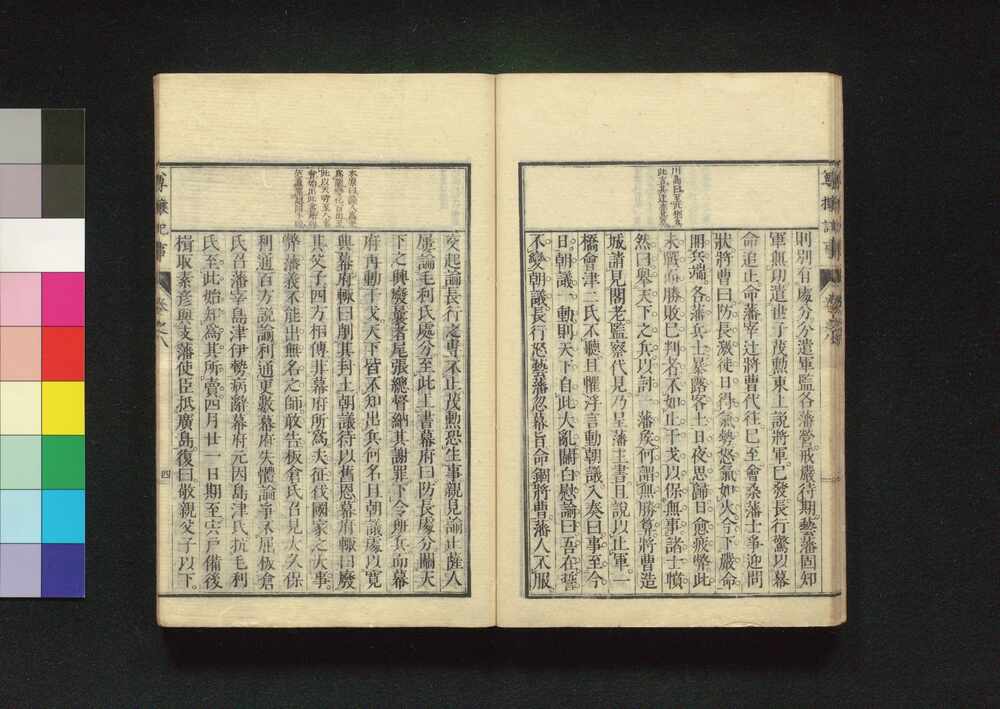 尊攘紀事
卷之八
川島曰至此朝
則別有處分分遣軍監各藩營戒嚴待期藝藩固知
軍無功遣世子茂勲東上說將軍已發長行驚以幕
命追止命藩宰辻將曹代往已至會桑藩士爭迎問
狀將曹曰防長激徒日得氣勢怒氣如火今下嚴命
開兵端各藩兵士暴露客土日夜思歸日愈疲弊此
未戰而勝敗已判者不如止干戈以保無事諸士憤
然曰舉天下之兵以討一藩矣何謂無勝算將曹造
城請見閣老監察代見乃呈藩主書且說以止軍一
橋會津二氏不聽且懼浮言動朝議入奏曰事至今
日朝議一動則天下自此大亂關白慰諭曰吾在誓
不變朝議長行怒藝藩忽幕旨命錮將曹藩人不服
交起論長行之專不止茂勲恐生事親見諭止薩人
屢論毛利氏處分至此上書幕府曰防長處分關天
下之興廢曩者尾張總督納其謝罪下令班兵而幕
府再動干戈天下皆不知出兵何名且朝議處以寬
典幕府輙曰削其封土朝議待以舊恩幕府輙曰廢
其父子四方相傳非幕府所爲夫征伐國家之大事
弊藩義不能出無名之師敢告板倉氏召見大久保
利通百方說諭利通更數幕府失體論爭不屈板倉
氏召藩宰島津伊勢病辭幕府元因島津氏抗毛利
氏至此始知爲其所賣四月廿一日期至宍戶備後
楫取素彦與支藩使臣抵廣島復曰敬親父子以下
尊攘紀事
卷之八
四